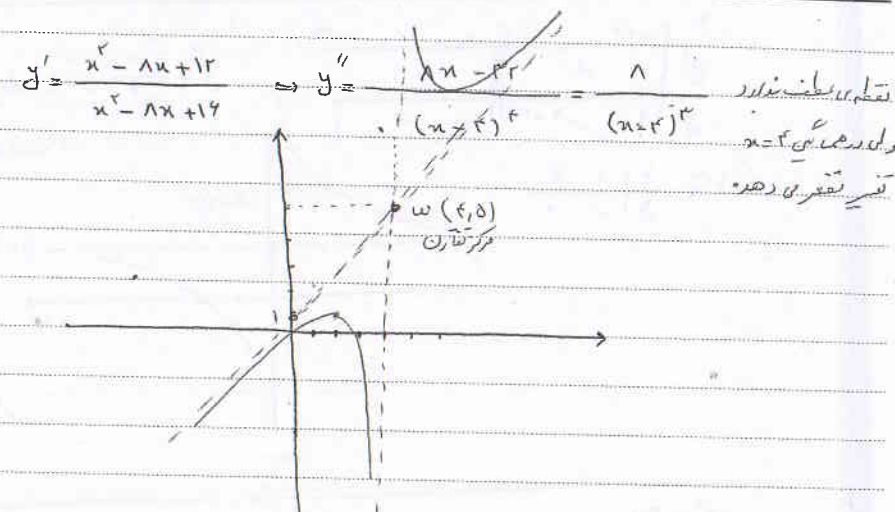 y' = (x^۲ - ۸x + ۱۲) / (x^۲ - ۸x + ۱۶) ⇒ y'' = (۸x - ۳۲) / (x - ۴)^۴ = ۸ / (x - ۴)^۳
نقطه‌ی عطف ندارد
ولی در همسایگی x = ۴
تغییر تقعر می دهد.
ω (۴,۵)
مرکز تقارن
۱